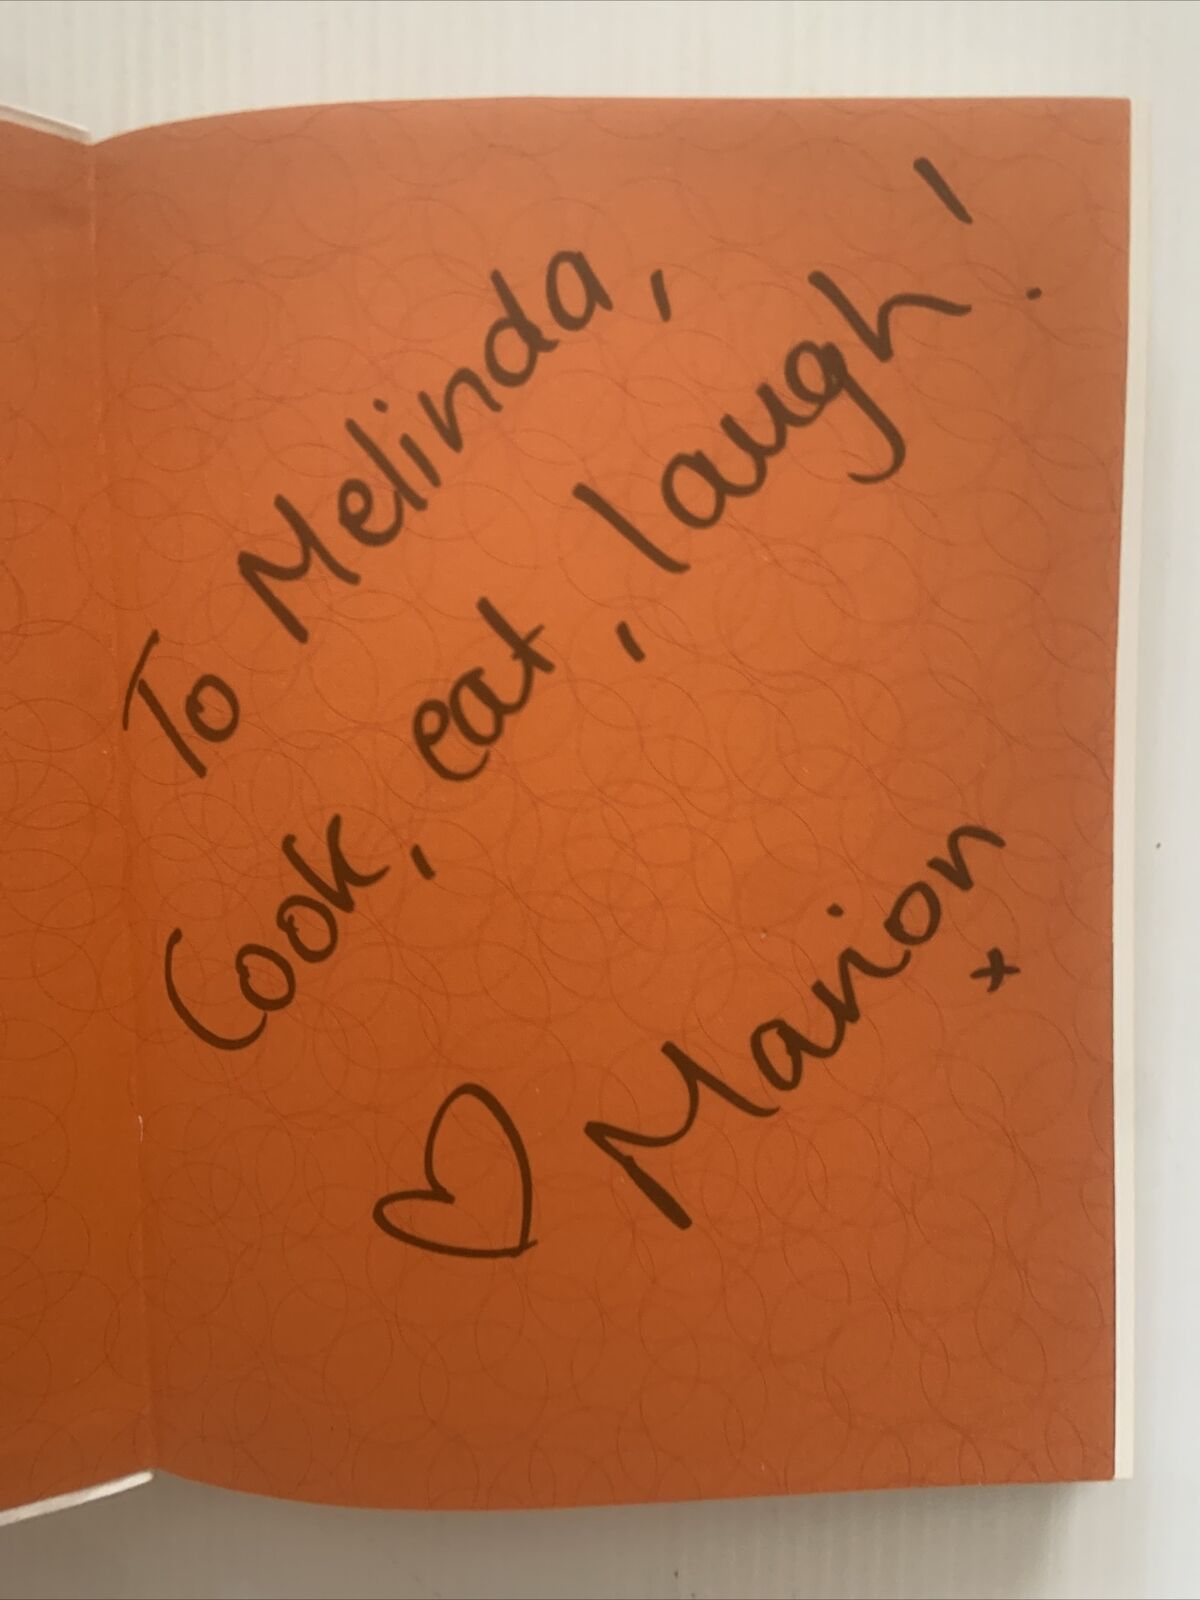 To Melinda,
Cook, eat, laugh!
♡ Marion
x